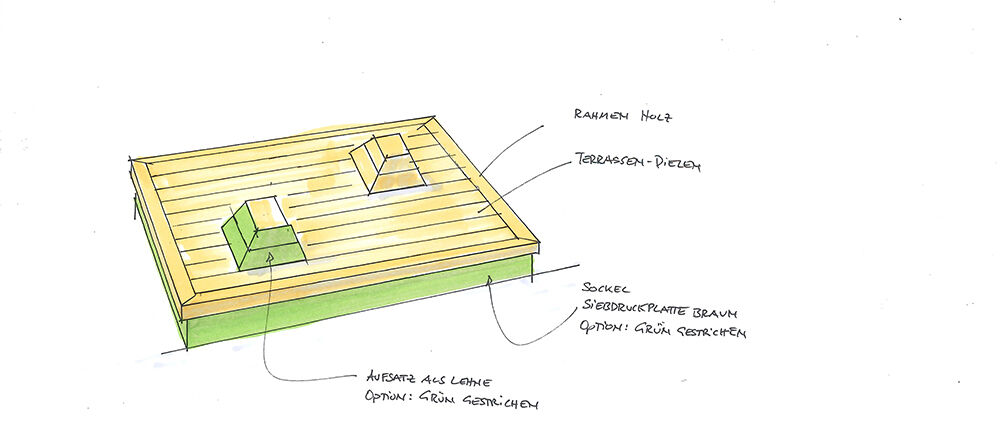 RAHMEN HOLZ
TERRASSEN-DIELEN
SOCKEL
SIEBDRUCKPLATTE BRAUN
OPTION: GRÜN GESTRICHEN
AUFSATZ ALS LEHNE
OPTION: GRÜN GESTRICHEN